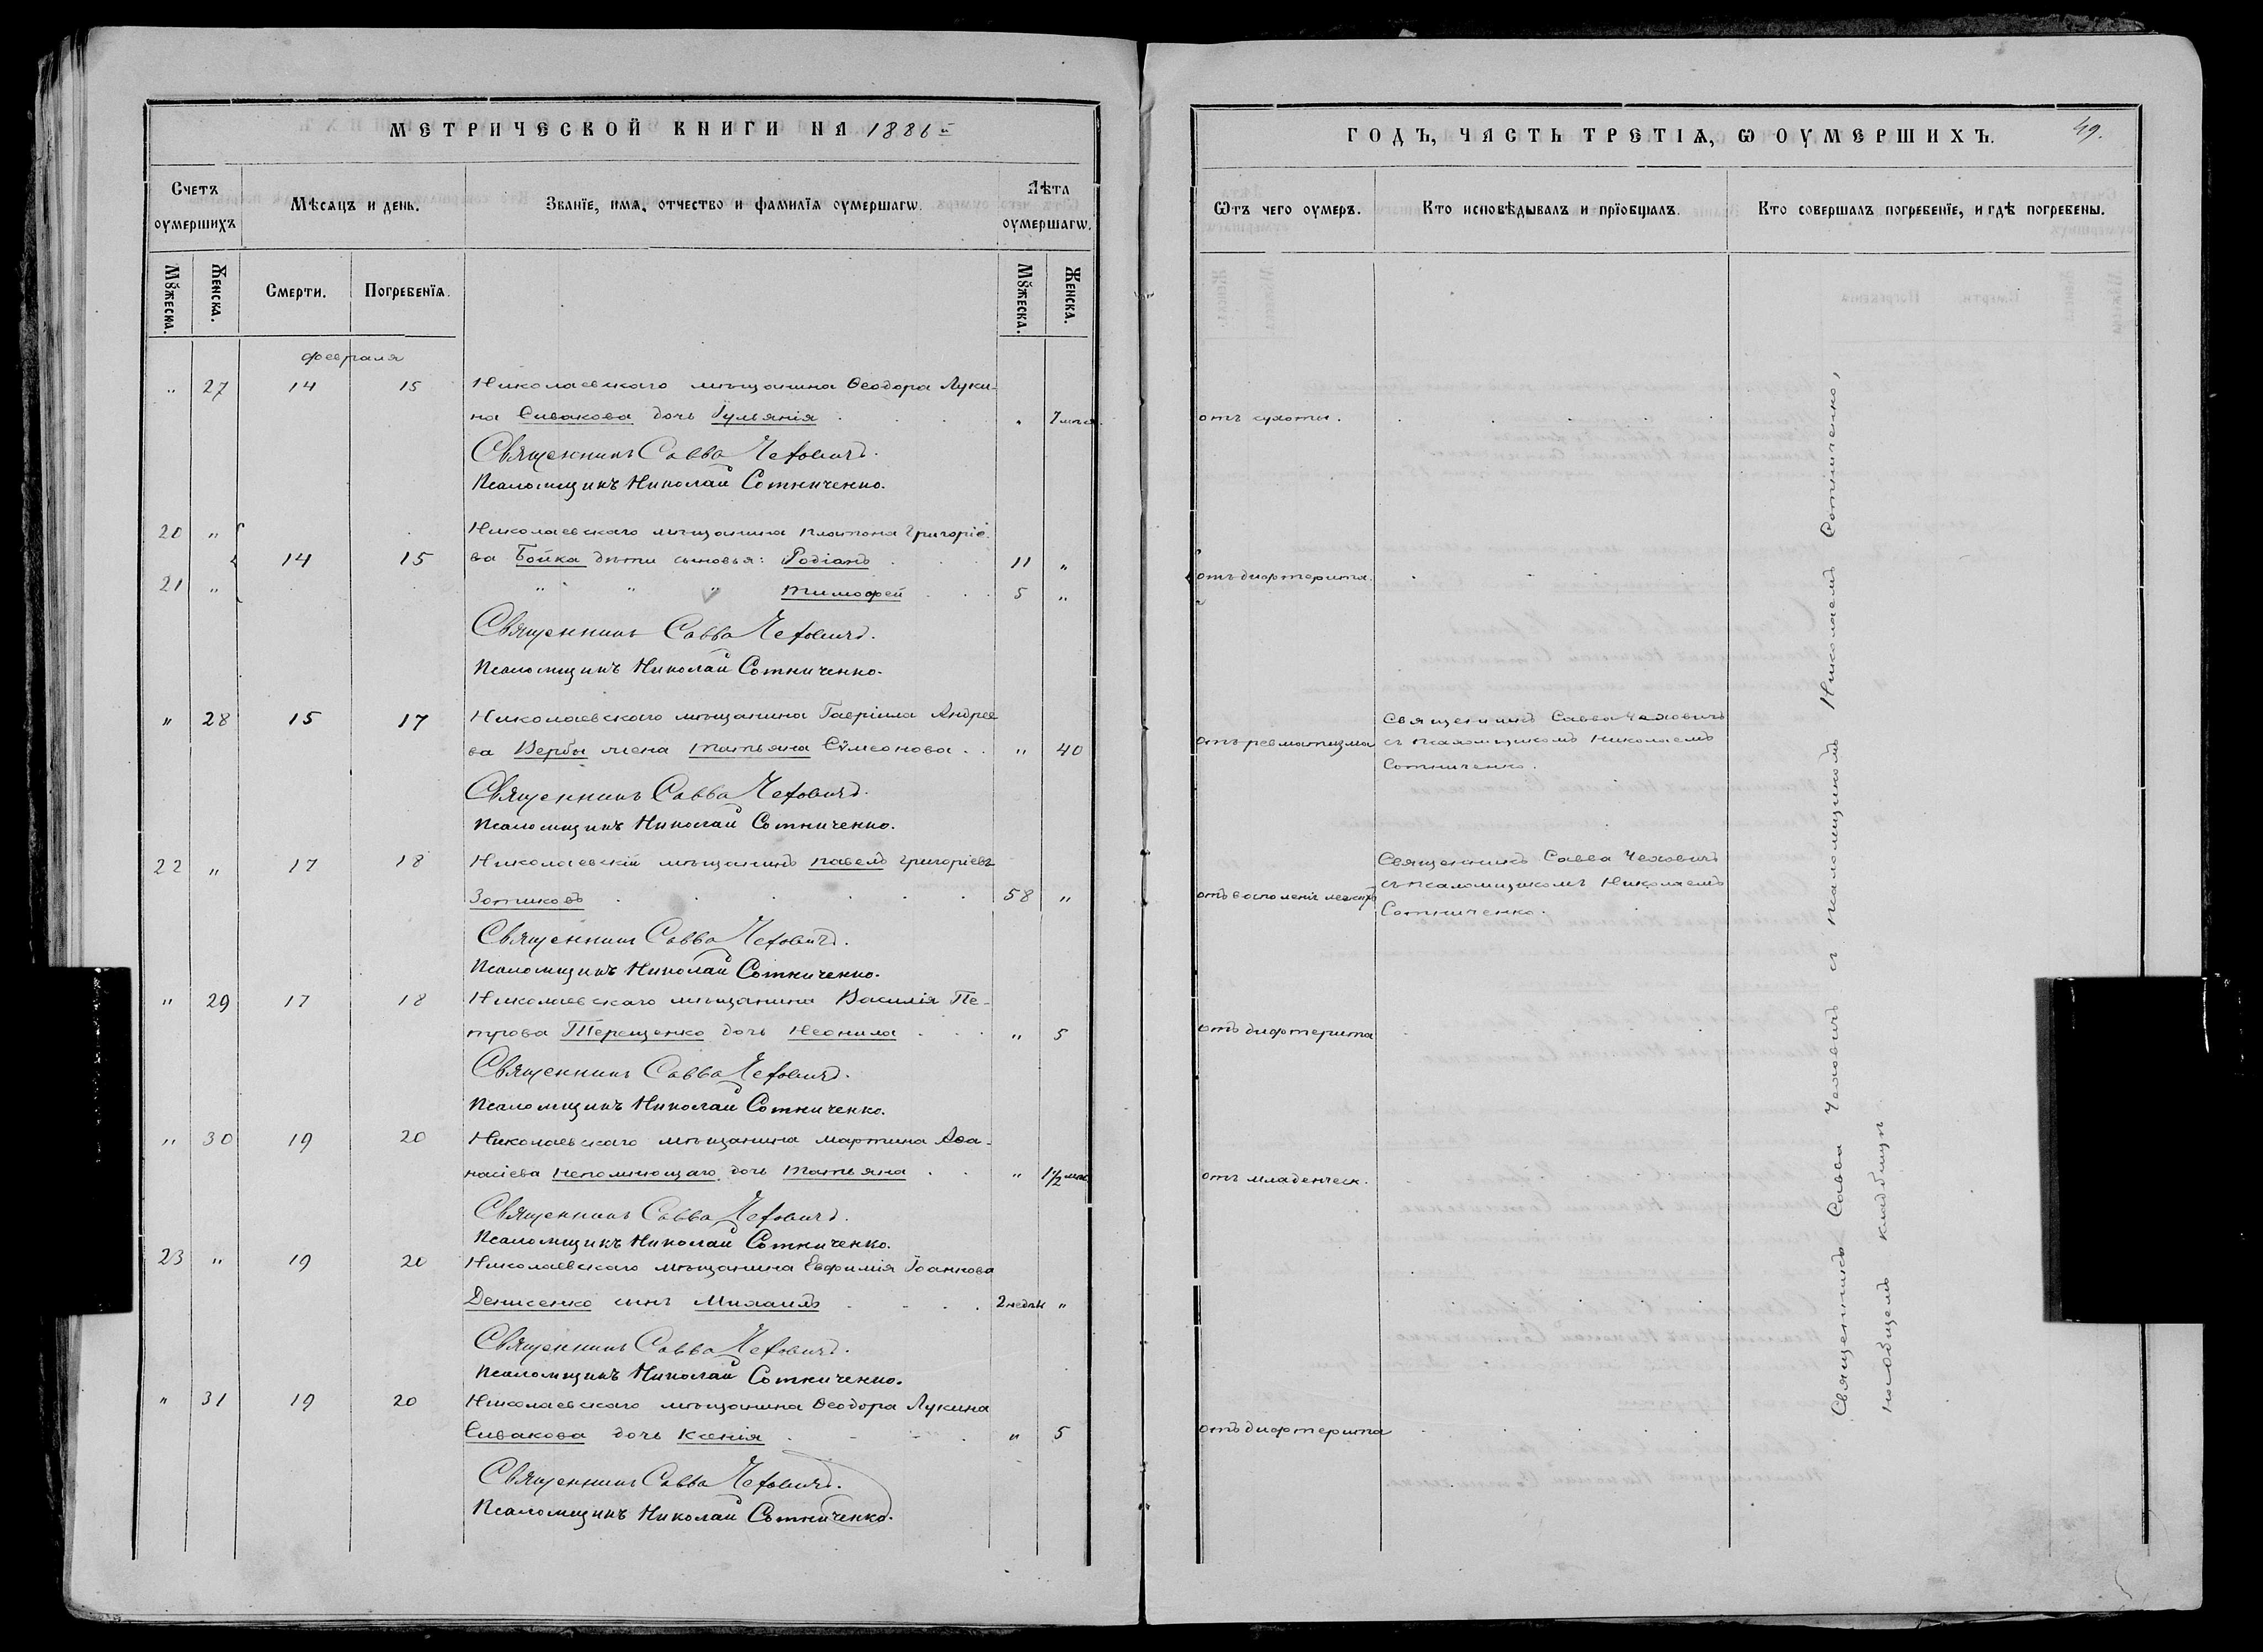 МЕТРИЧЕСКОЙ КНИГИ НА 1886й
Счетъ оумершихъ
Мѣсяцъ и день.
Званїе, имя, отчество и фамилїя оумершагѡ.
Лѣта оумершагѡ.
Мꙋжеска.
Женска.
Смерти.
Погребенїя.
Мꙋжеска.
Женска.
февраля
" 27 14 15 Николаевскаго мѣщанина Ѳеодора Луки-
на Сивакова дочь Іуліанія . . . " 7 мѣс.
Священникъ Савва Чеховичъ.
Псаломщикъ Николай Сотниченко.
20 " Николаевскаго мѣщанина Платона Григоріе-
14 15 ва Бойка дѣти сыновья: Родіанъ . . . 11 "
21 " " " " Тимофей . . . 5 "
Священникъ Савва Чеховичъ.
Псаломщикъ Николай Сотниченко.
" 28 15 17 Николаевскаго мѣщанина Гавріила Андрее
ва Вербы жена Татьяна Сѵмеонова . . " 40
Священникъ Савва Чеховичъ.
Псаломщикъ Николай Сотниченко.
22 " 17 18 Николаевскій мѣщанинъ Павелъ Григоріевъ
Зотиковъ . . . . . . 58 "
Священникъ Савва Чеховичъ.
Псаломщикъ Николай Сотниченко.
" 29 17 18 Николаевскаго мѣщанина Василія Пе-
трова Терещенко дочь Неонила . . . " 5
Священникъ Савва Чеховичъ.
Псаломщикъ Николай Сотниченко.
" 30 19 20 Николаевскаго мѣщанина Мартина Аѳа-
насіева Непомнющаго дочь Татьяна . . " 1 1/2 мѣс.
Священникъ Савва Чеховичъ.
Псаломщикъ Николай Сотниченко.
23 " 19 20 Николаевскаго мѣщанина Евфимія Іоаннова
Денисенко сынъ Михаилъ . . . . 2 недѣли "
Священникъ Савва Чеховичъ.
Псаломщикъ Николай Сотниченко.
" 31 19 20 Николаевскаго мѣщанина Ѳеодора Лукина
Сивакова дочь Ксенія . . . . " 5
Священникъ Савва Чеховичъ.
Псаломщикъ Николай Сотниченко.
ГОДЪ, ЧАСТЬ ТРЕТІѦ, Ѡ ОУМЕРШИХЪ.
49.
Ѿтъ чего оумеръ.
Кто исповѣдывалъ и прїобщалъ.
Кто совершалъ погребенїе, и гдѣ погребены.
отъ сухоты.
отъ дифтерита.
отъ ревматизма
Священникъ Савва Чеховичъ
съ псаломщикомъ Николаемъ
Сотниченко.
отъ воспаленія легкихъ
Священникъ Савва Чеховичъ
съ псаломщикомъ Николаемъ
Сотниченко.
отъ дифтерита
отъ младенческ.
отъ дифтерита
Священникъ Савва Чеховичъ съ псаломщикомъ Николаемъ Сотниченко,
на общемъ кладбищѣ